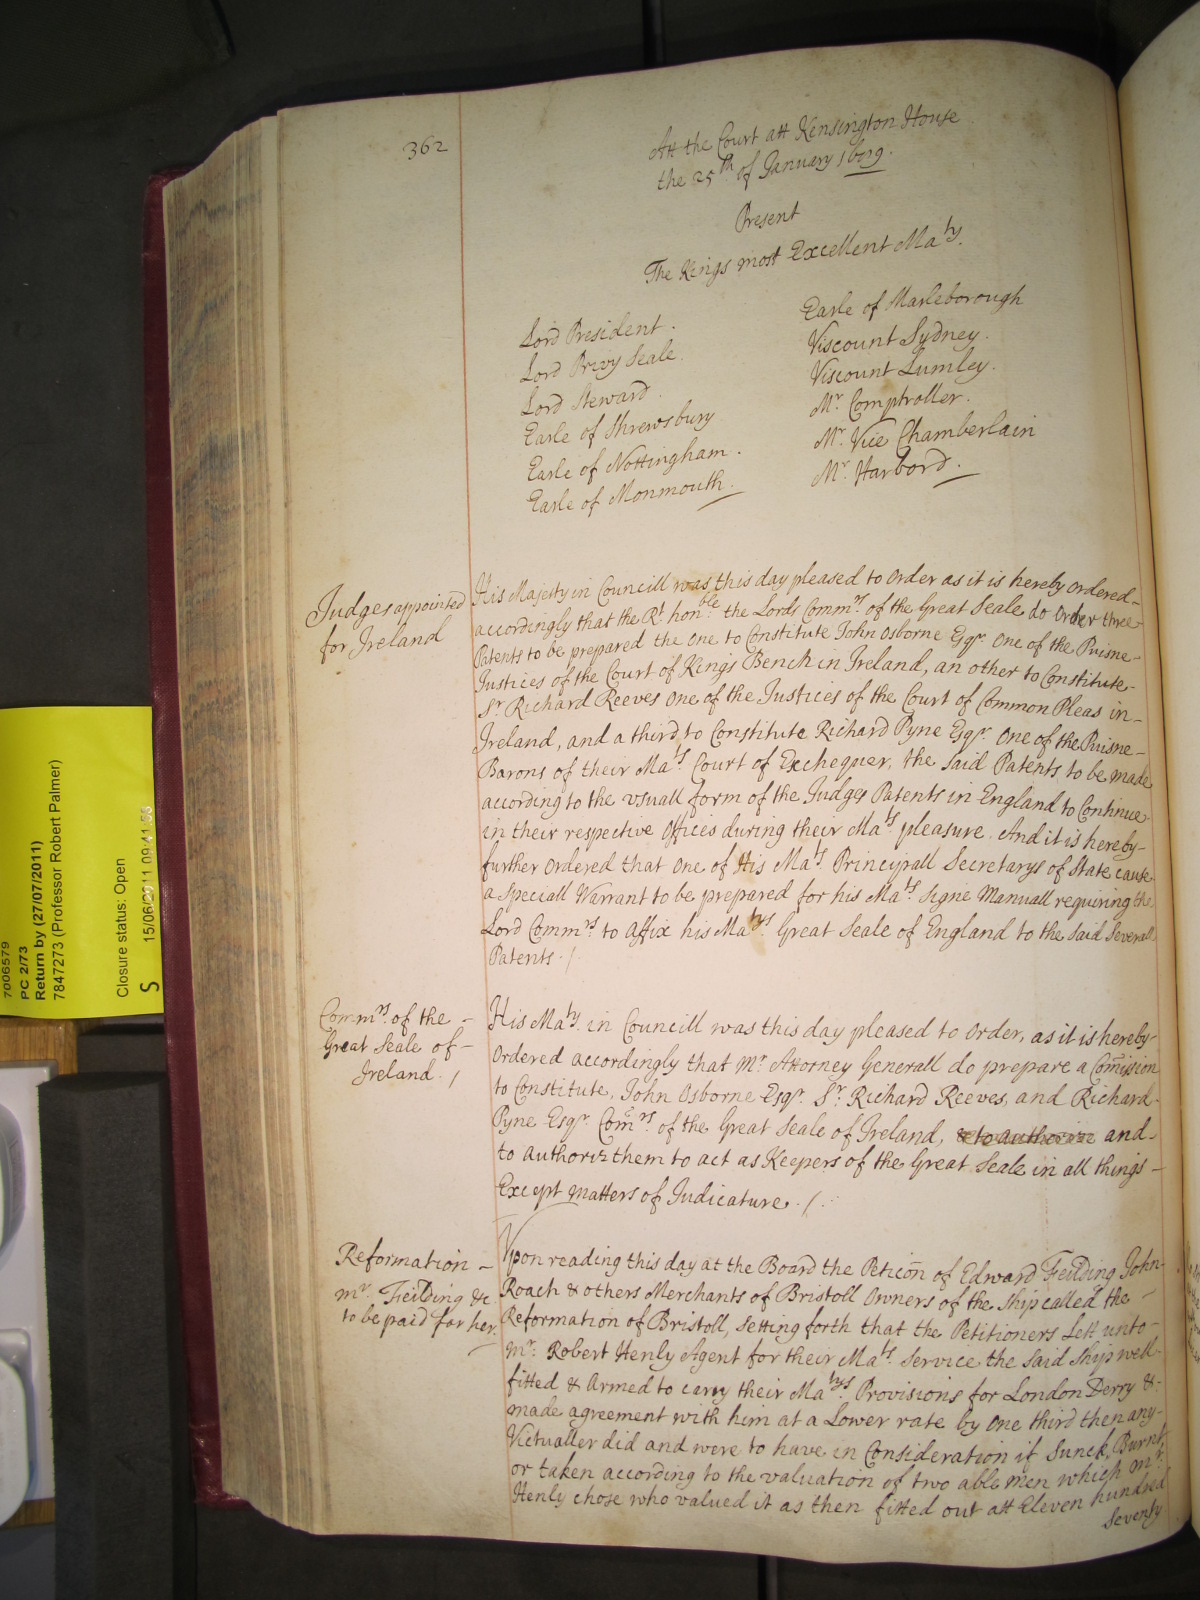 362
Att the Court att Kensington House
the 25th of January 1689.
Present
The Kings most Excellent Maty.
Lord President.
Lord Privy Seale.
Lord Steward.
Earle of Shrewsbury
Earle of Nottingham.
Earle of Monmouth.
Earle of Marleborough
Viscount Sydney.
Viscount Lumley.
Mr. Comptroller.
Mr. Vice Chamberlain
Mr. Harbord.
Judges appointed
for Ireland
His Majesty in Councill was this day pleased to Order as it is hereby Ordered-
accordingly that the Rt. honble the Lords Commrs. of the Great Seale do Order three-
Patents to be prepared the one to Constitute John Osborne Esqr. One of the Puisne-
Justices of the Court of Kings Bench in Ireland, an other to Constitute-
Sr. Richard Reeves one of the Justices of the Court of Common Pleas in-
Ireland, and a third, to Constitute Richard Pyne Esqr. One of the Puisne-
Barons of their Mats. Court of Exchequer, the said Patents to be made
according to the vsuall form of the Judges Patents in England to Continue
in their respective Offices during their Mats. pleasure. And it is hereby-
further Ordered that one of His Mats. Principall Secretarys of State cause
a speciall Warrant to be prepared for his Mats. Signe Manuall requiring the
Lord Commrs. to affix his Matys Great Seale of England to the said Severall
Patents. /
Commrs. of the -
Great Seale of -
Ireland. /
His Maty. in Councill was this day pleased to Order, as it is hereby-
Ordered accordingly that Mr. Attorney Generall do prepare a Comission
to Constitute, John Osborne Esqr. Sr. Richard Reeves, and Richard-
Pyne Esqr. Comrs. of the Great Seale of Ireland, & to authorize and-
to authoriz them to act as Keepers of the Great Seale in all things-
Except matters of Judicature. /.
Reformation -
Mr. Feilding &c
to be paid for her.
Vpon reading this day at the Board the Peticon of Edward Feilding John-
Roach & others Merchants of Bristoll Owners of the Ship called the -
Reformation of Bristoll, setting forth that the Petitioners Lett unto-
Mr. Robert Henly Agent for their Mats. Service the said Ship well-
fitted & Armed to carry their Matys. Provisions for London Derry &-
made agreement with him at a Lower rate by one third then any-
Victualler did and were to have in Consideration if Sunck, Burnt,
or taken according to the valuation of two able men which Mr.
Henly chose who valued it as then fitted out att Eleven hundred
Seventy
7006579
PC 2/73
Return by (27/07/2011)
7847273 (Professor Robert Palmer)
Closure status: Open
S